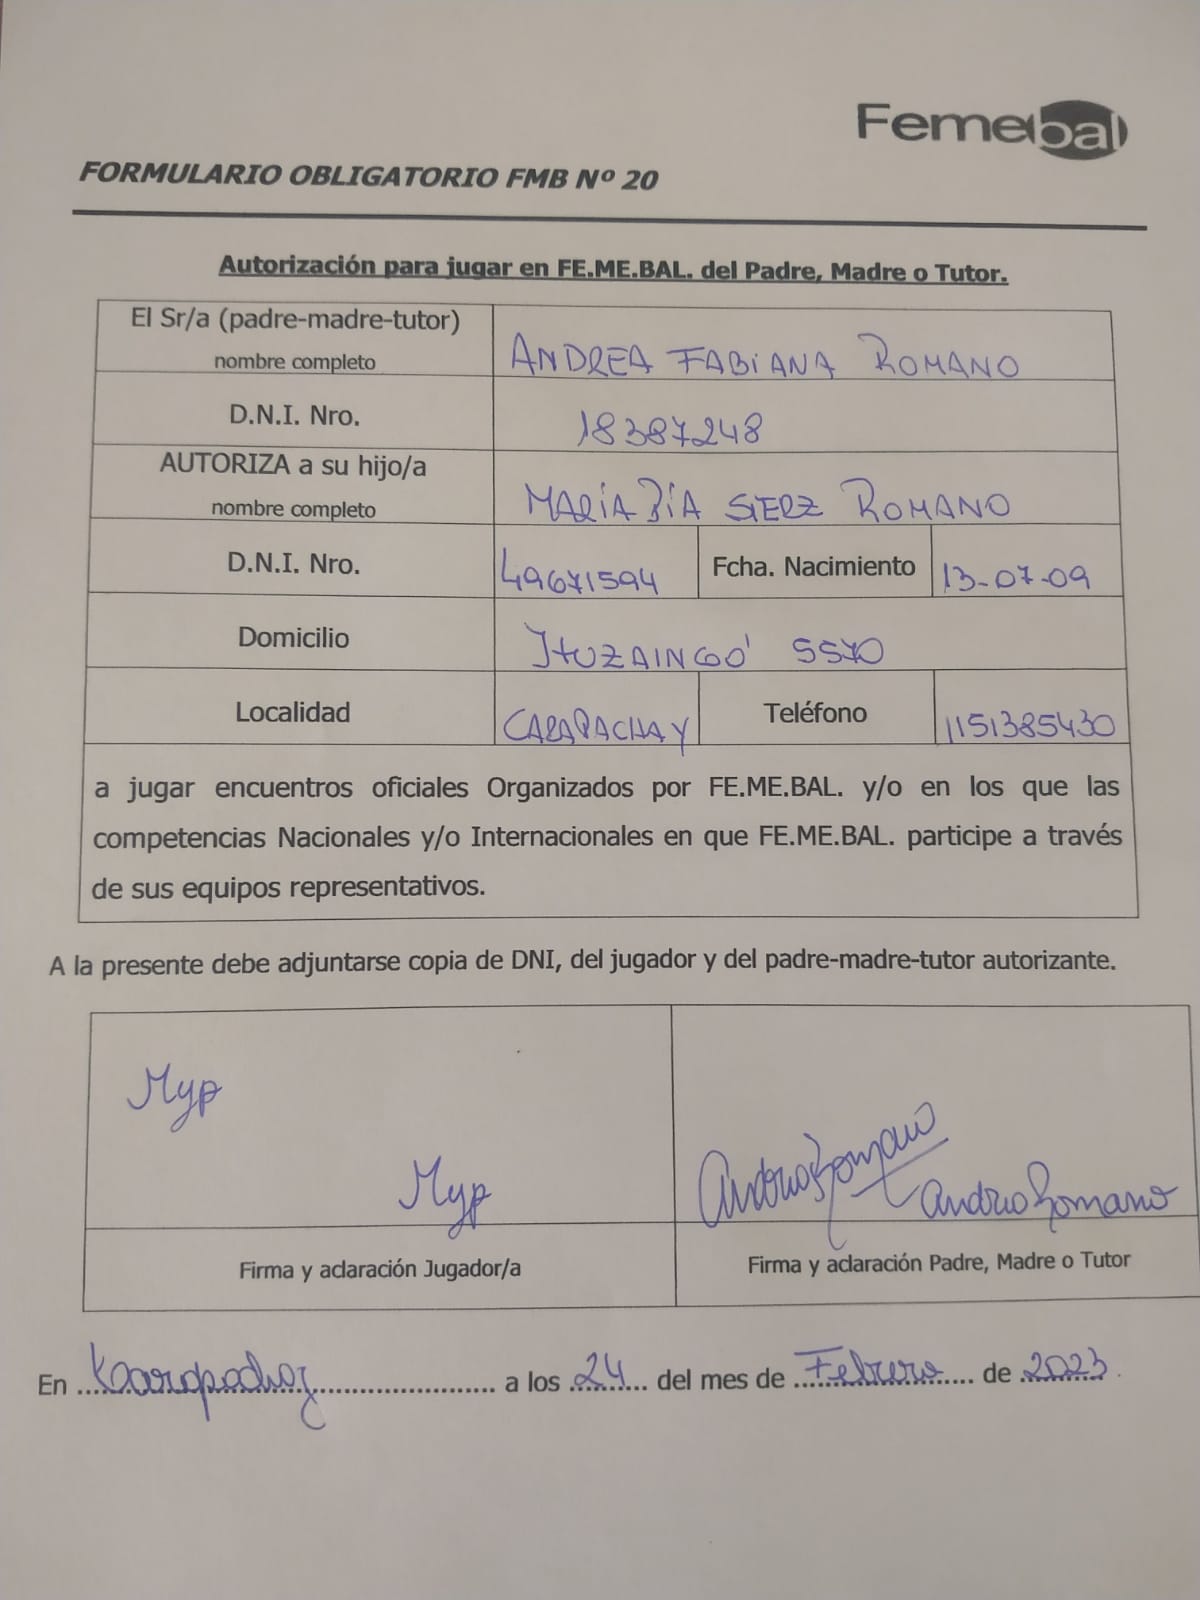 Femebal
FORMULARIO OBLIGATORIO FMB Nº 20
Autorización para jugar en FE.ME.BAL. del Padre, Madre o Tutor.
El Sr/a (padre-madre-tutor)
nombre completo
ANDREA FABIANA ROMANO
D.N.I. Nro.
18387248
AUTORIZA a su hijo/a
nombre completo
MARÍA PÍA SIERZ ROMANO
D.N.I. Nro.
49671594
Fcha. Nacimiento
13-07-09
Domicilio
ITUZAINGÓ 5570
Localidad
CARAPACHAY
Teléfono
1151385430
a jugar encuentros oficiales Organizados por FE.ME.BAL. y/o en los que las
competencias Nacionales y/o Internacionales en que FE.ME.BAL. participe a través
de sus equipos representativos.
A la presente debe adjuntarse copia de DNI, del jugador y del padre-madre-tutor autorizante.
Andrea Romano
Andrea Romano
Firma y aclaración Jugador/a
Firma y aclaración Padre, Madre o Tutor
En ........ a los 24 del mes de Febrero de 2023.